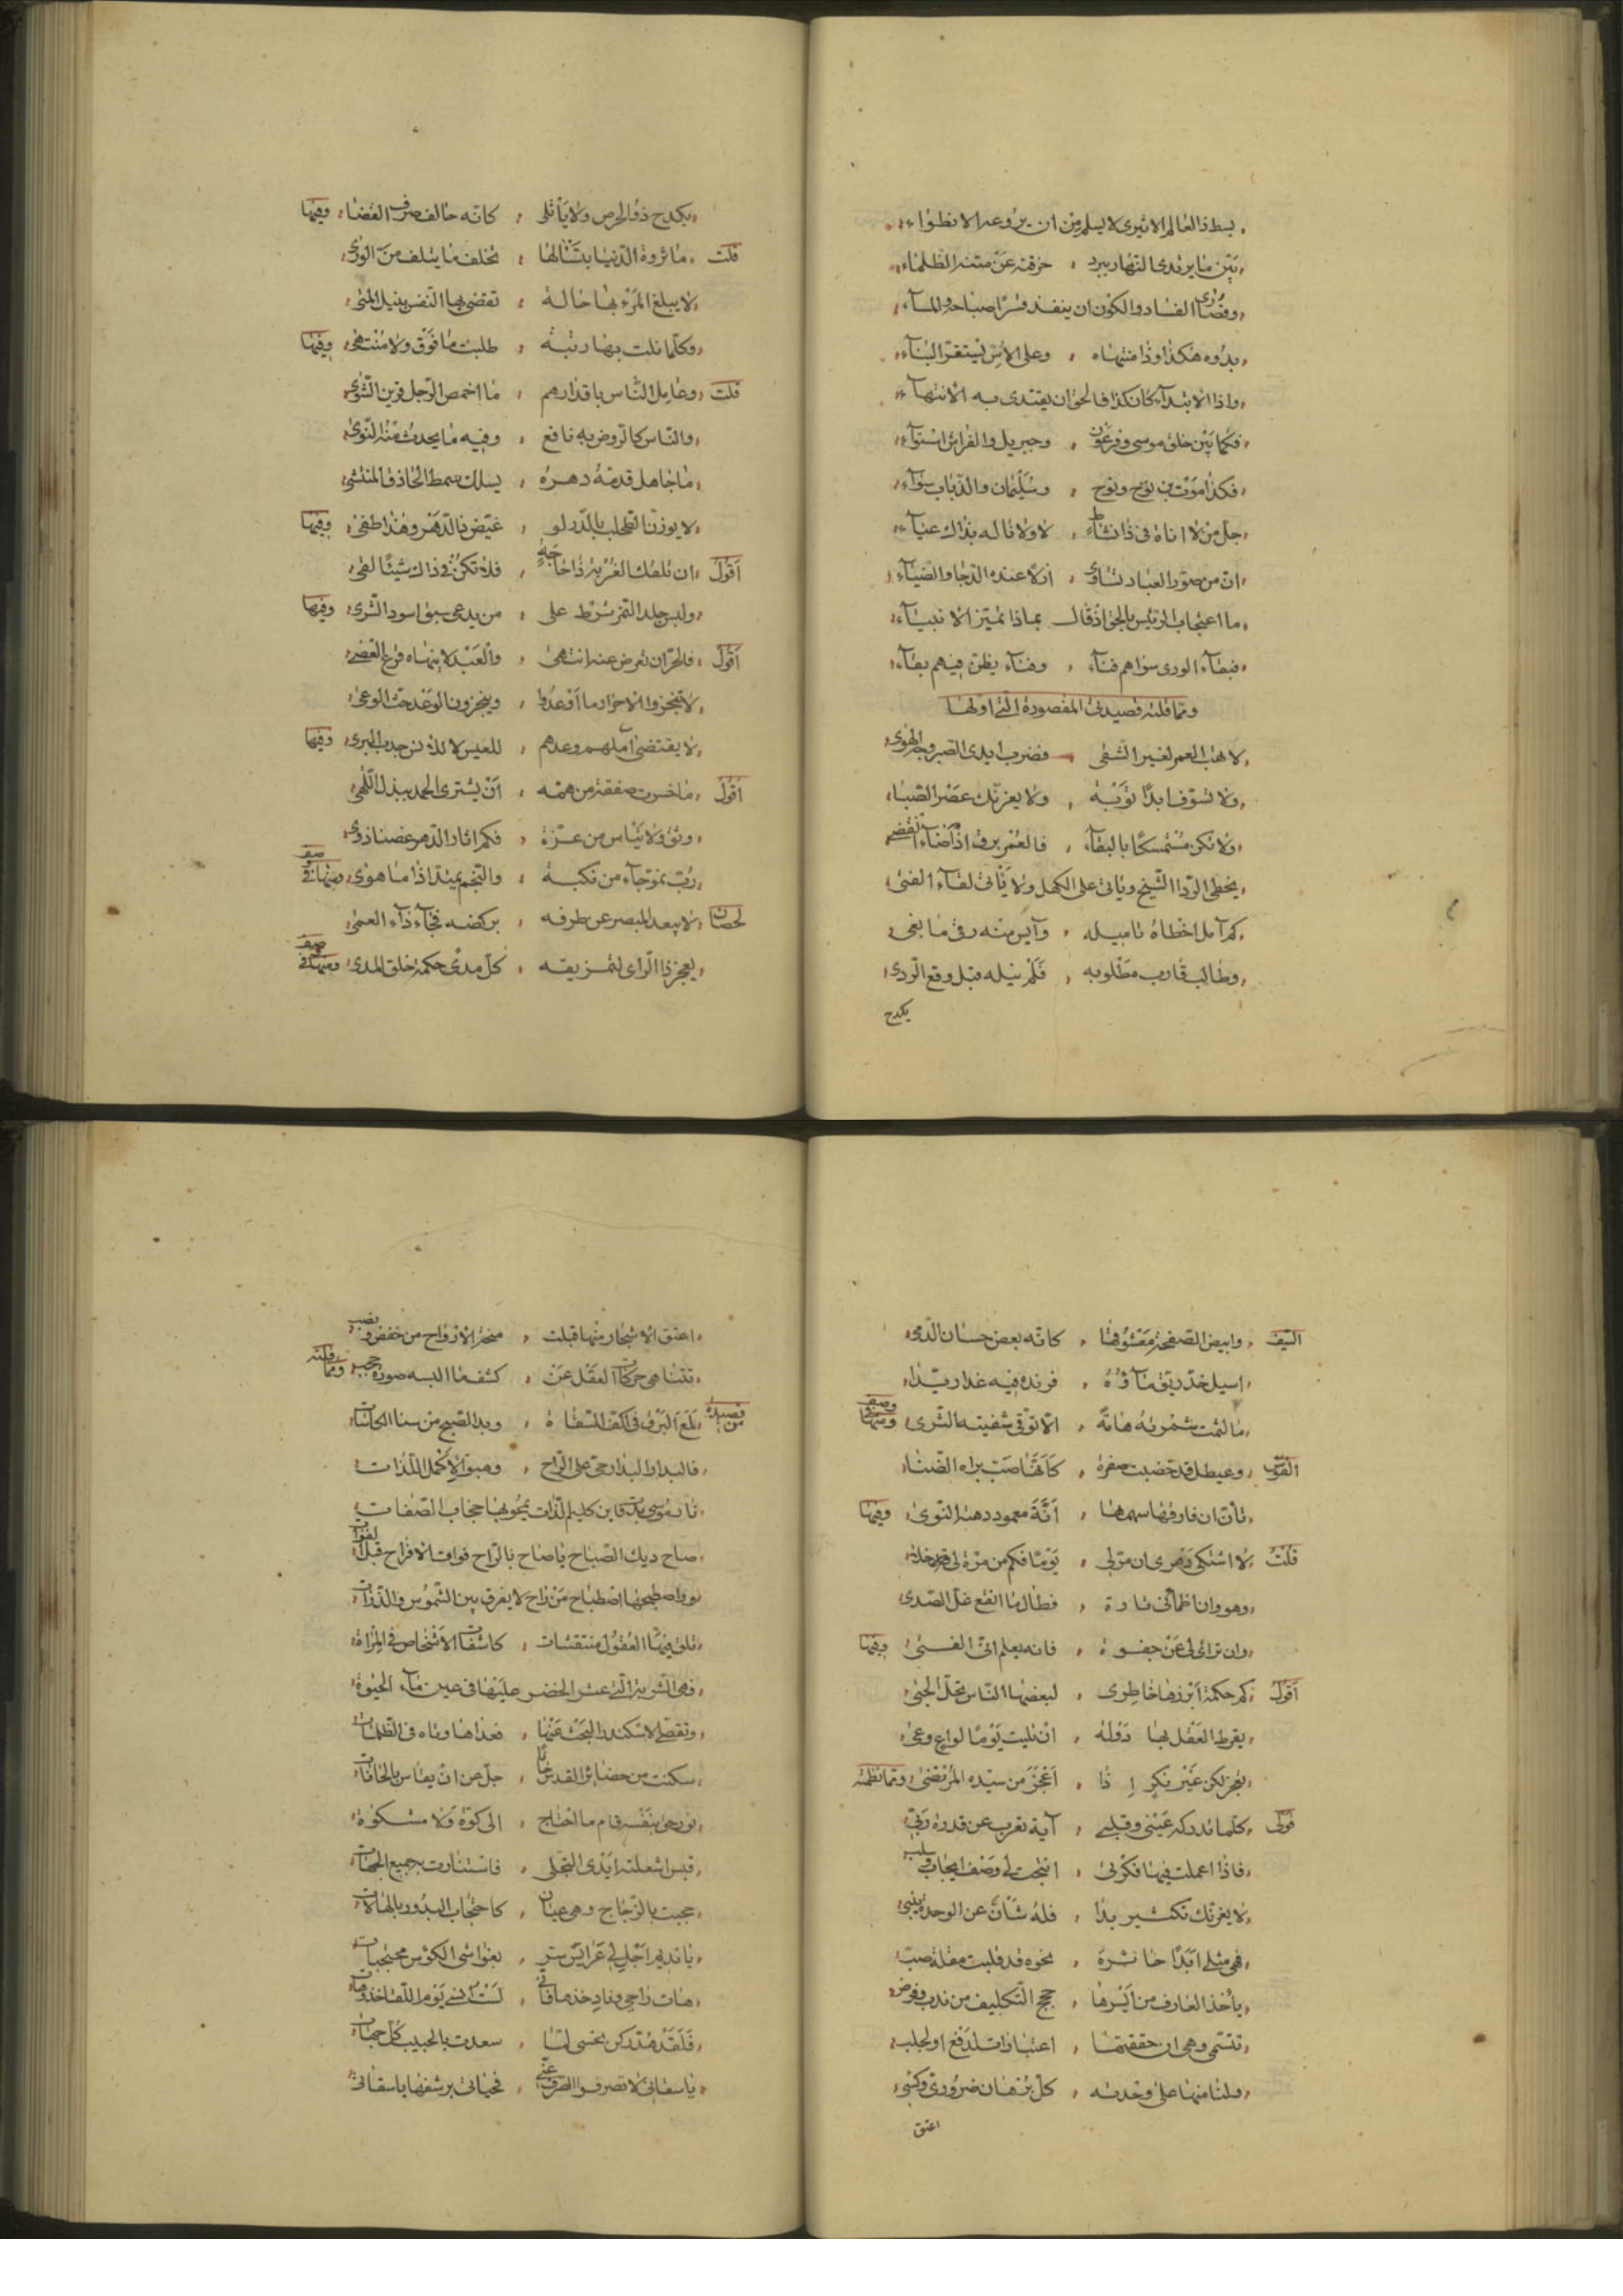 بسط ذا العالم الاثيرى لا يسلم من ان يروعه الانطواء
بين ما يرتدى النهار ببرد حزقته عن متنه الظلماء
وقصارى الفساد والكون ان ينفد قسرا صباحه والمساء
بدوه هكذا وذا منتهاه وعلى الاس يستقر البناء
واذا الابتداء كان كذا فالحق ان يقتدى به الانتهاء
فكما بين خلق موسى وفرعون وجبريل والفراش استواء
فكذا موت بن نوح ونوح وسليمان والذباب سواء
جل من لا اناة فى ذا نشاط لا ولا ناله بذاك عياء
ان من صور العباد تساوى ازلا عنده الدجا والضياء
ما اعتجاب الرئيس بالحق اذ قال بماذا تميز الانبياء
فبقاء الورى سواهم فناء وفناء يظن فيهم بقاء
ومما قلته قصيدتى المقصورة التى اولها
لا تهب العمر لغير التقى فضرب ايدى الصبر وجه الهوى
ولا تسوف ابدا توبة ولا يغرنك عصر الصبا
ولا تكن مستمسكا بالبقاء فالعمر برق اذ اضاء انقضى
يخطى الردا الشيخ وياتى على الكهل ولا يتانى لقاء الفتى
كم آمل اخطاه تاميله وآيس منه رقى ما بغى
وطالب قارب مطلوبه فلم ينله قبل وقع الردى
يكدح
يكدح ذو الحرص ولا يأتلى كانه حالف صرف القضا وفيها
قلت ما ثروة الدنيا بتسآلها تخلف ما يتلف من الورى
لا يبلغ المرء بها حالة تقضى بها النفس بنيل المنى
وكلما نلت بها رتبة طلبت ما فوق ولا منتهى وفيها
قلت وعامل الناس باقدارهم ما اخمص الرجل قرين الشوى
والناس كالروض به نافع وفيه ما يحدث منه التوى
ما جاهل قدمه دهره يسلك سمط الحاذق المنتشى
لا يوزن الطحلب بالدر لو غيض ذا الدهر وهذا طفى وفيها
اقول ان تلفك الغربة ذا حاجة فلا تكن فى ذاك شيئا لفى
ولبس جلد النمر شرط على من يدعى سبق اسود الشرى وفيها
اقول فالحر ان تعرض عنه انتهى والعبد لا ينهاه قرع العصى
لا تنجز الاحرار ما اوعدوا وينجزون الوعد حث الوحى
لا يقتضى آملهم وعدهم للعيس لا لدن جذب البرى وفيها
اقول ما خسرت صفقة من همه ان يشترى الحمد ببذل اللهى
وثق ولا تيأس من عزة فكم اثار الدهر غصنا ذوى
رب نمو جاء من نكبة والنجم ميتدا اذا ما هوى ومنها فى صفة
لحصان لا يبعد المبصر عن طرفه بركضه فجاءة داء العمى
يعجز ذا الراى لتمزيقه كل مدى حكمة خلق المدى ومنها فى صفة
السيف وابيض الصفحة معشوقها كانه بعض حسان الدمى
اسيل خد ريق ماؤه فرنده فيه غدا ريدا
ما لثمت شفرته هامة الا توقى شفتيه الثرى ومنها فى وصف
القوس وعيطل قد خضبت صفرة كانها صب براه الضنا
تأن ان فارقها سهمها انة معمود دهته النوى وفيها
قلت لا اشتكى دهرى ان مر لى يوما فكم من مرة لى قد حلا
وهو وان اظمأنى تارة فطال ما انقع غل الصدى
وان ترائى لى عن جفوة فانه يعلم انى الفتى وفيها
اقول كم حكمة ابرزها خاطرى لبعضها الناس تحل الحبى
يقرط العقل بها دوله ان تليت يوما لواع وعى
يعجز لكن غير نكر اذا اعجز من سيده المرتضى ومما نظمته
قولى كلما تدركه عينى وقلبى آية تعرب عن قدرة ربى
فاذا اعملت فيها فكرتى انتجت لى وصف ايجاب وسلب
لا يغرنك تكثير بدا فله شأن عن الوحدة ينبى
فهى مثلى ابدا حائرة نحوه قد قلبت مقلة صب
يأخذ العارف من ايسرها حجج التكليف من ندب وفرض
تنتمى وهى ان حققتها اعتبارات لدفع او لجلب
ولنا منها على وحدته كل برهان ضرورى وكسبى
اعتق
اعتق الاشجار منها قبلت منحة الارواح من خفض ونصب
تتناهى حركات العقل عن كشف ما البسه صورة حجب ومما قلته
من قصيدة لمع البرق فى اكف السقاة وبدا الصبح من سنا الكاسات
فالبدار البدار حى على الراح وهبوا لاكمل اللذات
نار موسى بدت فاين كليم الذات يمحو بها حجاب الصفات
صاح ديك الصباح يا صاح بالراح فوات الافراح قبل الفوات
واصطبحها اصطباح من راح لا يفرق بين الشموس والذرات
تلق فيها العقول منتقشات كانتقاش الاشخاص فى المرآة
فهى الشربة التى عثر الخضر عليها فى عين ماء الحيوة
وتقصى الاسكندر البحث عنها فعداها وتاه فى الظلمات
سكنت من حضائر القدس حانا جل عن ان يقاس بالحانات
نور حق بنفسه قام ما احتاج الى كوة ولا مشكوة
قبس اشعلته ايدى التجلى فاستنارت بجميع الجهات
حجبت بالزجاج وهى عيان كاحتجاب البدور بالهالات
يا نديمى اجل لى عرايس ستر بغواشى الكؤس محتجبات
هات راحى وناد خذها فانى لست انسى يوم اللقا خذ وهات
فلقد هد ركن نحسى لما سعدت بالحبيب كل جهات
يا سقاتى لا تصرفوا الصرف عنى فحياتى برشفها يا سقاتى